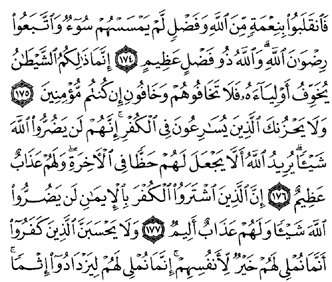 فَٱنقَلَبُوا۟ بِنِعْمَةٍ مِّنَ ٱللَّهِ وَفَضْلٍ لَّمْ يَمْسَسْهُمْ سُوٓءٌ وَٱتَّبَعُوا۟
رِضْوَٰنَ ٱللَّهِ وَٱللَّهُ ذُو فَضْلٍ عَظِيمٍ ١٧٤ إِنَّمَا ذَٰلِكُمُ ٱلشَّيْطَٰنُ
يُخَوِّفُ أَوْلِيَآءَهُۥ فَلَا تَخَافُوهُمْ وَخَافُونِ إِن كُنتُم مُّؤْمِنِينَ ١٧٥
وَلَا يَحْزُنكَ ٱلَّذِينَ يُسَٰرِعُونَ فِى ٱلْكُفْرِ إِنَّهُمْ لَن يَضُرُّوا۟ ٱللَّهَ
شَيْـًٔا يُرِيدُ ٱللَّهُ أَلَّا يَجْعَلَ لَهُمْ حَظًّا فِى ٱلْـَٔاخِرَةِ وَلَهُمْ عَذَابٌ
عَظِيمٌ ١٧٦ إِنَّ ٱلَّذِينَ ٱشْتَرَوُا۟ ٱلْكُفْرَ بِٱلْإِيمَٰنِ لَن يَضُرُّوا۟
ٱللَّهَ شَيْـًٔا وَلَهُمْ عَذَابٌ أَلِيمٌ ١٧٧ وَلَا يَحْسَبَنَّ ٱلَّذِينَ كَفَرُوٓا۟
أَنَّمَا نُمْلِى لَهُمْ خَيْرٌ لِّأَنفُسِهِمْ إِنَّمَا نُمْلِى لَهُمْ لِيَزْدَادُوٓا۟ إِثْمًا